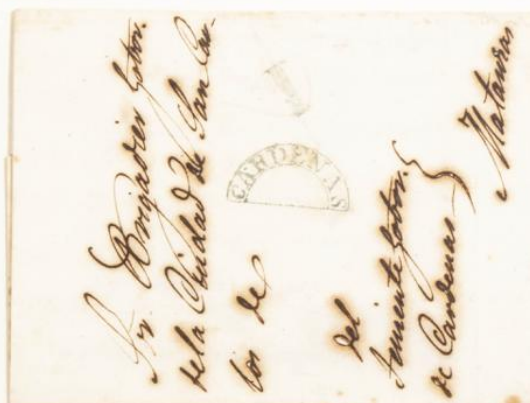 Sr. Brigadier Gobor.
de la Ciudad de San Car-
los de
Matanzas
del
Teniente Gobor.
de Cardenas
CARDENAS